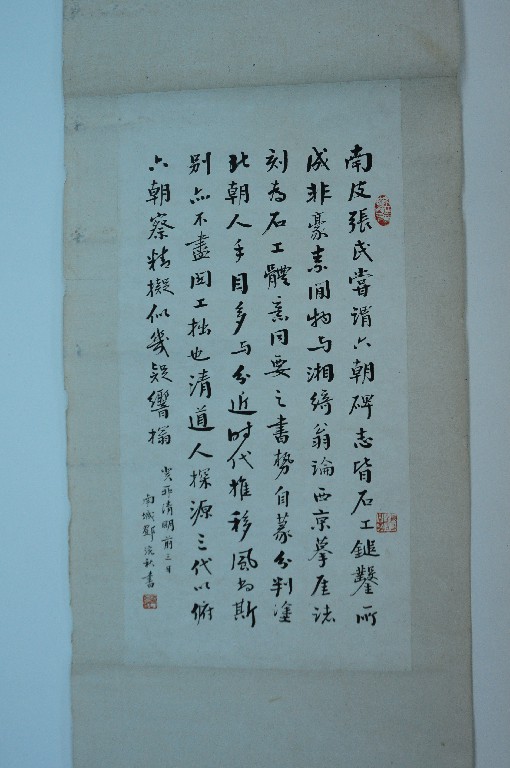 南皮張氏嘗謂六朝碑志皆石工鎚鑿所
成非豪素間物与湘綺翁論西京摹厓誌
刻為石工體意同要之書勢自篆分判塗
北朝人手目多与分近時代推移風尚斯
別亦不盡因工拙也清道人探源三代以俯
六朝察精擬似幾疑響搨
癸亚清明前三日
南城鄧秋書